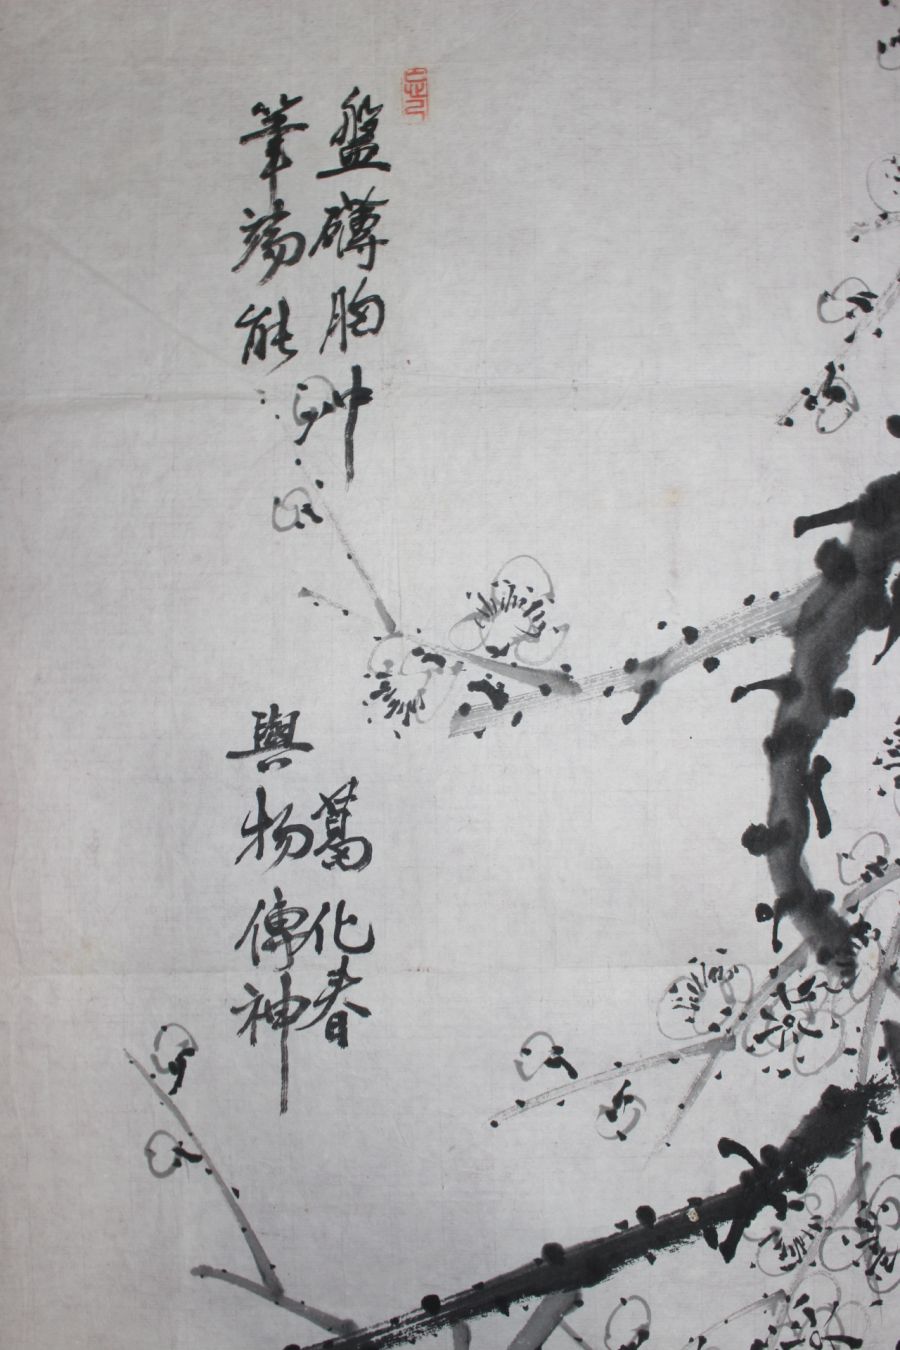 盤礴胸中萬化春
筆端能與物傳神